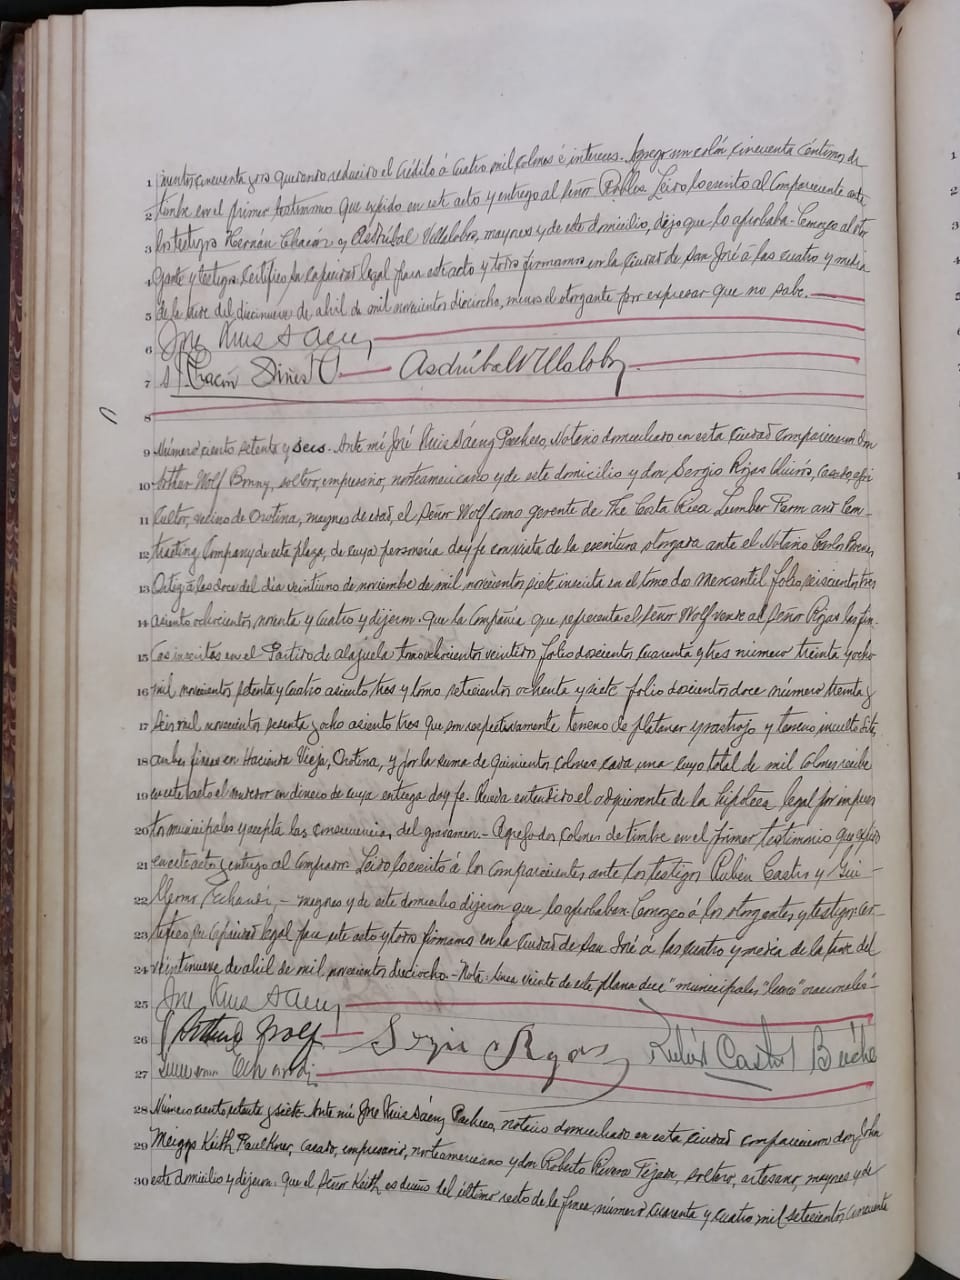 1 cincuenta y dos quedando reducido el crédito á cuatro mil colones é intereses. Agrego un colón cincuenta céntimos de
2 timbre en el primer testimonio que expido en este acto y entrego al señor Robles. Leido lo escrito al compareciente ante
3 los testigos Hernán Chacón y Asdrúbal Villalobos, mayores y de este domicilio, dijo que lo aprobaba. Conozco al otor
4 gante y testigos. Certifico su capacidad legal para este acto y todos firmamos en la ciudad de San José á las cuatro y media
5 de la tarde del diecinueve de abril de mil novecientos dieciocho, menos el otorgante por expresar que no sabe.
6 José Luis Sáenz
7 Chacón Asdrúbal Villalobos
8
9 Número ciento setenta y seis. Ante mí José Luis Sáenz Pacheco, Notario domiciliado en esta ciudad comparecieron don
10 Arthur Wolf Bonny, soltero, empresario, norteamericano y de este domicilio y don Sergio Rojas Quirós, casado, agri
11 cultor, vecino de Orotina, mayores de edad, el señor Wolf como gerente de The Costa Rica Lumber Farm and Con-
12 tracting Company de esta plaza, de cuya personería doy fe con vista de la escritura otorgada ante el Notario Carlos
13 Ortiz á las doce del día veintiuno de noviembre de mil novecientos siete inscrita en el tomo dos Mercantil folio seiscientos tres
14 asiento ochocientos noventa y cuatro y dijeron: que la Compañía que representa el señor Wolf vende al señor Rojas las fin-
15 cas inscritas en el Partido de Alajuela tomo ochocientos veintidos folio doscientos cuarenta y tres número treinta y ocho
16 mil novecientos setenta y cuatro asiento tres y tomo setecientos ochenta y siete folio doscientos doce número treinta y
17 seis mil novecientos sesenta y ocho asiento tres que son respectivamente terreno de platanar y rastrojo y terreno inculto sitas
18 ambas fincas en Hacienda Vieja, Orotina, y por la suma de quinientos colones cada una cuyo total de mil colones recibe
19 en este acto el vendedor en dinero de cuya entrega doy fe. Queda entendido el adquirente de la hipoteca legal por impues
20 tos municipales y acepta las consecuencias del gravamen.- Agrego dos colones de timbre en el primer testimonio que expido
21 en este acto y entrego al comprador. Leido lo escrito á los comparecientes ante los testigos Rubén Castro y Gui-
22 llermo Echandi, - mayores y de este domicilio dijeron que lo aprobaban. Conozco á los otorgantes y testigos: cer-
23 tifico su capacidad legal para este acto y todos firmamos en la ciudad de San José á las cuatro y media de la tarde del
24 veintinueve de abril de mil novecientos dieciocho.- Nota: línea veinte de este plana dice "municipales" léase "nacionales"
25 José Luis Sáenz
26 Arthur Wolf Sergio Rojas Rubén Castro Beeche
27 Guillermo Echandi
28 Número ciento setenta y siete. Ante mí José Luis Sáenz Pacheco, notario domiciliado en esta ciudad comparecieron don John
29 Meiggs Keith Faulkner, casado, empresario, norteamericano y don Roberto Rivera Tejada, soltero, artesano, mayores y de
30 este domicilio y dijeron: que el señor Keith es dueño del último resto de la finca número cuarenta y cuatro mil setecientos cincuenta